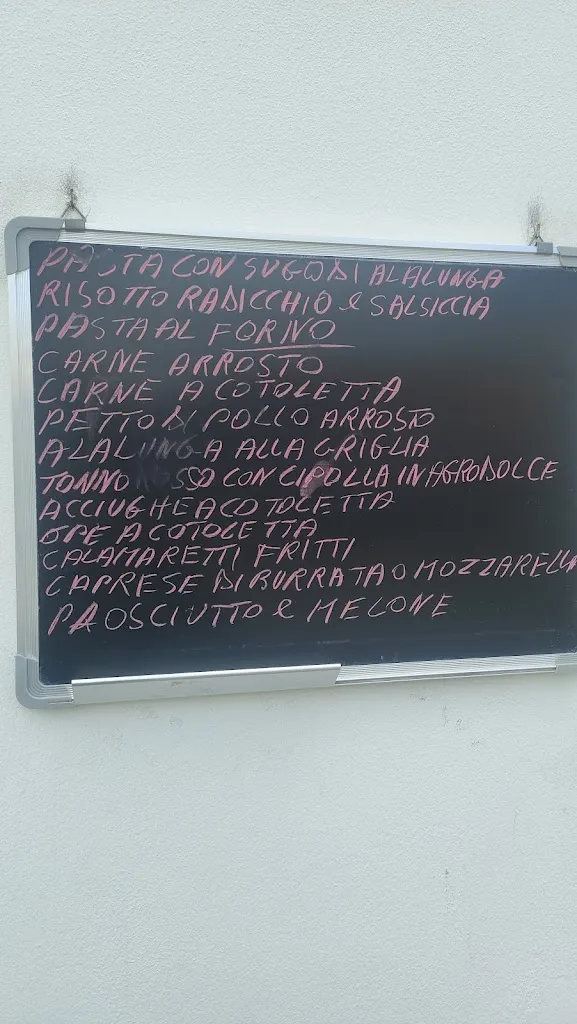 PASTA CON SUGO DI ALALUNGA
RISOTTO RADICCHIO e SALSICCIA
PASTA AL FORNO
CARNE ARROSTO
CARNE A COTOLETTA
PETTO DI POLLO ARROSTO
ALALUNGA ALLA GRIGLIA
TONNO ROSSO CON CIPOLLA IN AGRODOLCE
ACCIUGHE A COTOLETTA
OPE A COTOLETTA
CALAMARETTI FRITTI
CAPRESE DI BURRATA O MOZZARELLA
PROSCIUTTO e MELONE